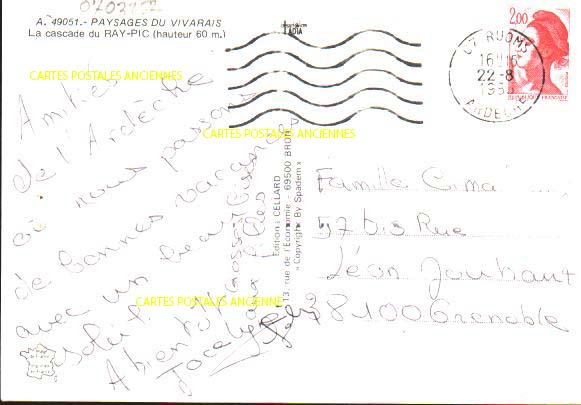 A. 49051.- PAYSAGES DU VIVARAIS
La cascade du RAY-PIC (hauteur 60 m.)
CARTES POSTALES ANCIENNES
CARTES POSTALES ANCIENNES
CARTES POSTALES ANCIENNES
Amitiés
de l'Ardèche
où nous passons
de bonnes vacances
avec un beau
soleil
A bientôt
Jocelyne
Edition: CELLARD
13, rue de l'Economie - 69500 BRON
« Copyright By Spadem »
2,00
RÉPUBLIQUE FRANÇAISE
ST RUOMS
16H15
22-8
ARDECHE
Famille
57 bis Rue
Léon Jouhaux
38100 Grenoble